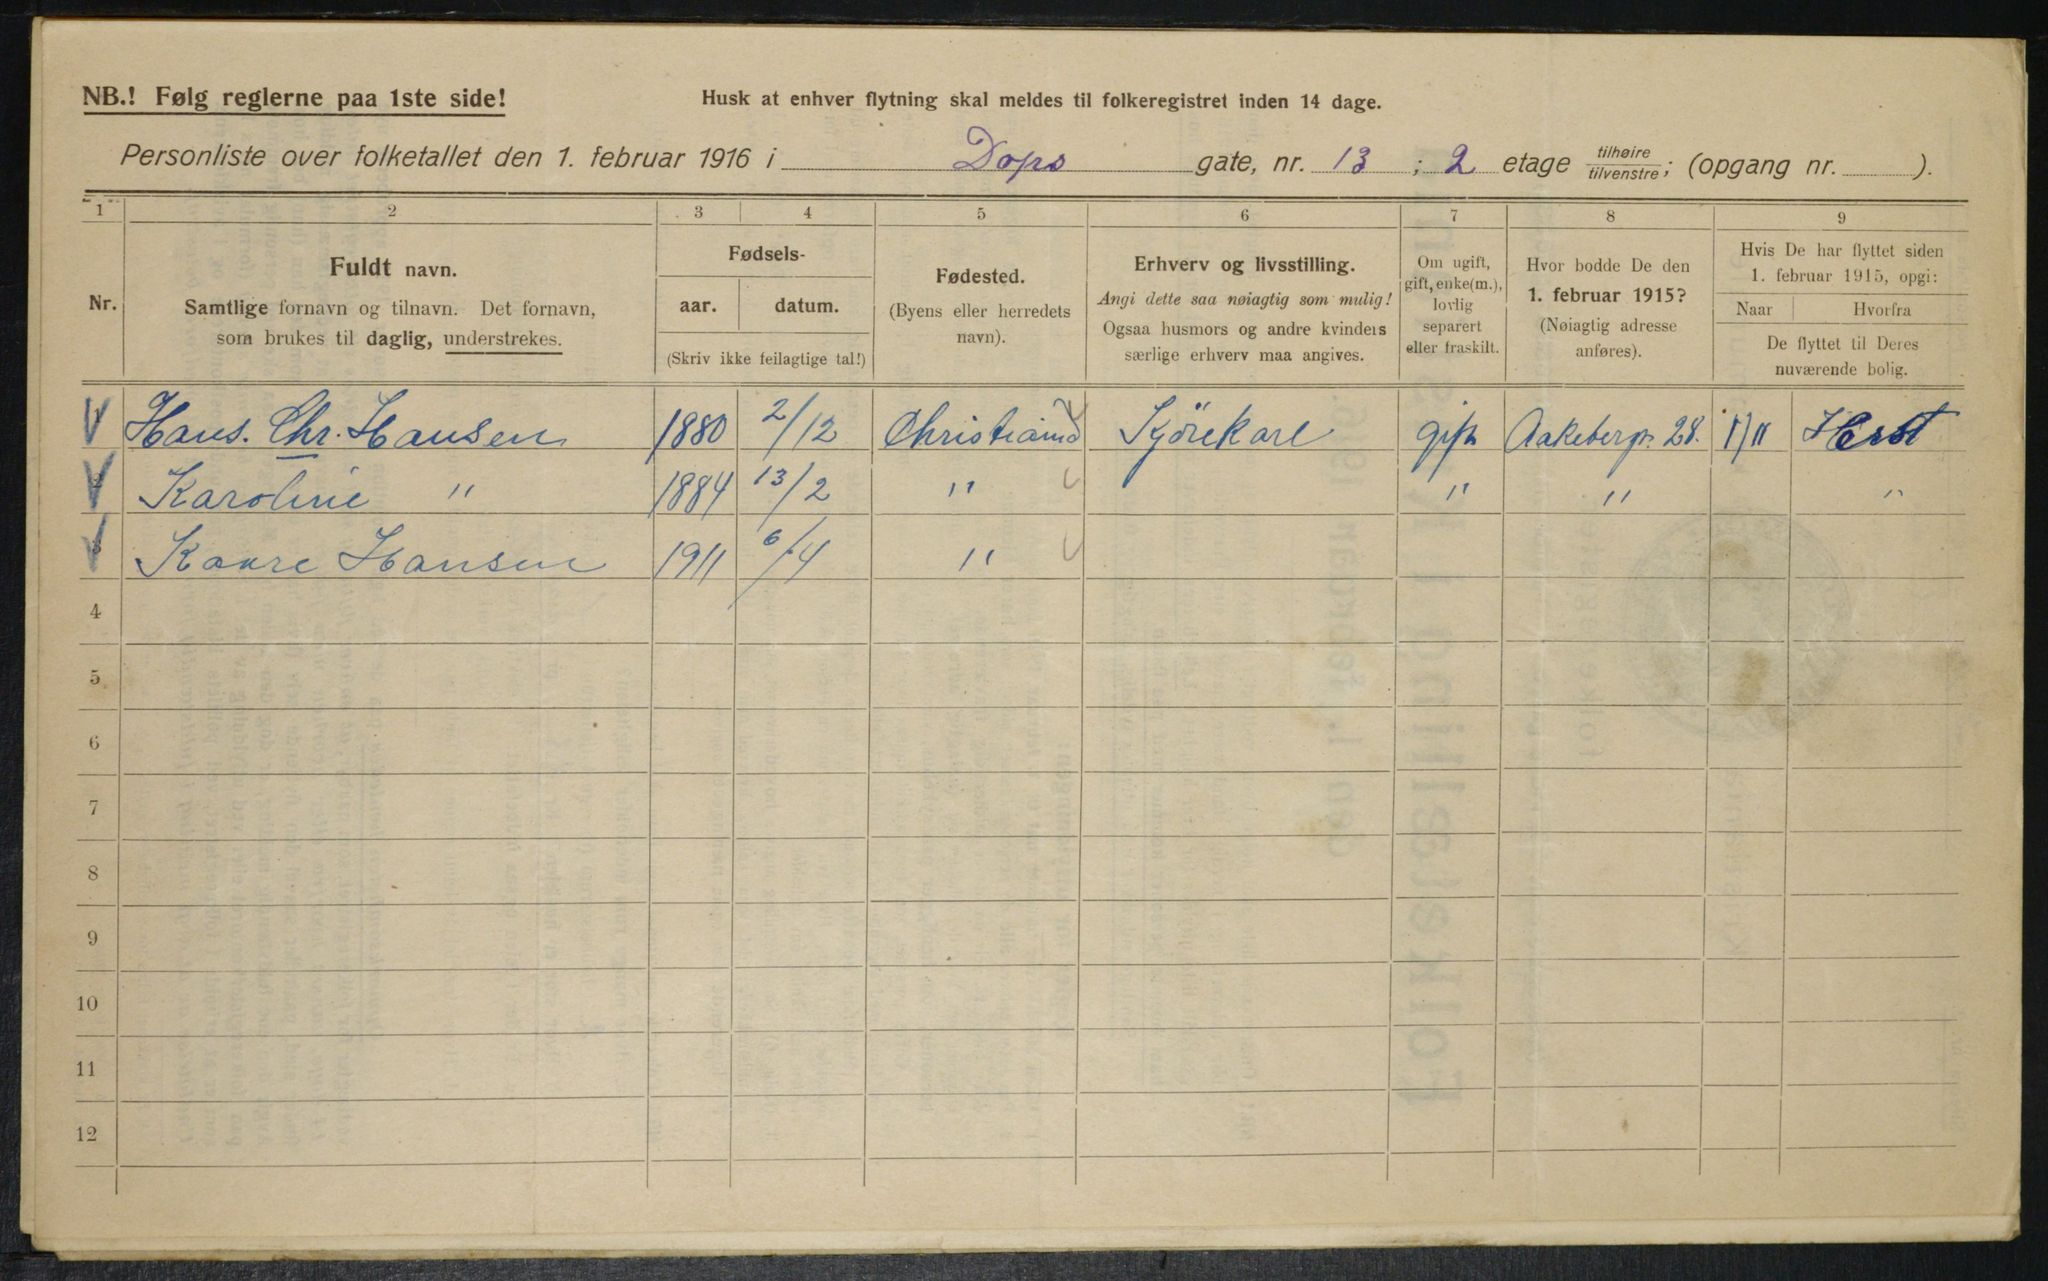 NB.! Følg reglerne paa 1ste side!
Husk at enhver flytning skal meldes til folkeregistret inden 14 dage.
Personliste over folketallet den 1. februar 1916 i Dops gate, nr. 13 ; 2 etage tilhøire/tilvenstre; (opgang nr. ).
1 2 3 4 5 6 7 8 9
Nr.
Fuldt navn.
Samtlige fornavn og tilnavn. Det fornavn,
som brukes til daglig, understrekes.
Fødsels-
aar. datum.
(Skriv ikke feilagtige tal!)
Fødested.
(Byens eller herredets
navn).
Erhverv og livsstilling.
Angi dette saa nøiagtig som mulig!
Ogsaa husmors og andre kvinders
særlige erhverv maa angives.
Om ugift,
gift, enke(m.),
lovlig
separert
eller fraskilt.
Hvor bodde De den
1. februar 1915?
(Nøiagtig adresse
anføres).
Hvis De har flyttet siden
1. februar 1915, opgi:
Naar Hvorfra
De flyttet til Deres
nuværende bolig.
Hans. Chr. Hansen 1880 2/12 Christiania Kjörekarl gift Aakebergv. 28.
Karoline " 1884 13/2 " " " "
Kaare Hansen 1911 6/4 "
4
5
6
7
8
9
10
11
12